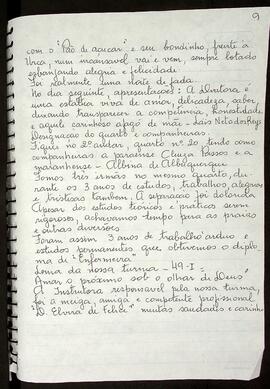 9
com o "Pão de açucar" e seu bondinho, frente à
Urca, num incansavel vai e vem, sempre lotado
esbanjando alegria e felicidade
Foi realmente uma noite de fada.
No dia seguinte, apresentações: A Diretora é
uma estatua viva de amor, delicadeza, saber,
deixando transparecer a competência, honestidade
e aquele carinho de pago de mãe - Lais Netto dos Reys
Designação do quarto e companheiras.
Fiquei no 2º andar, quarto nº 20 tendo como
companheiras a paraense Cleuza Passos e a
maranhense - Albina de Albuquerque
Somos três irmãs no mesmo quarto, du-
rante os 3 anos de estudos, trabalhos, alegrias
e tristezas tambem. A separação foi dolorida
Apesar dos estudos teóricos e práticos serem
rigorosos, achavamos tempo para as praias
e outras diversões.
Foram assim 3 anos de trabalho arduo e
estudos permanentes que obtivemos o diplo-
ma de "Enfermeira"
Lema da nossa turma - 49-I =
"Amar o próximo sob o olhar de Deus"
A Instrutora responsavel pela nossa turma,
foi a meiga, amiga e competente profissional
"D. Elvira de Felice" muitas saudades e carinho